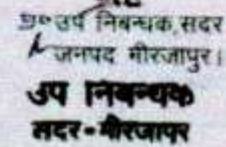 प्र०उप निबन्धक,सदर
जनपद मीरजापुर।
उप निबन्धक
सदर-मीरजापुर